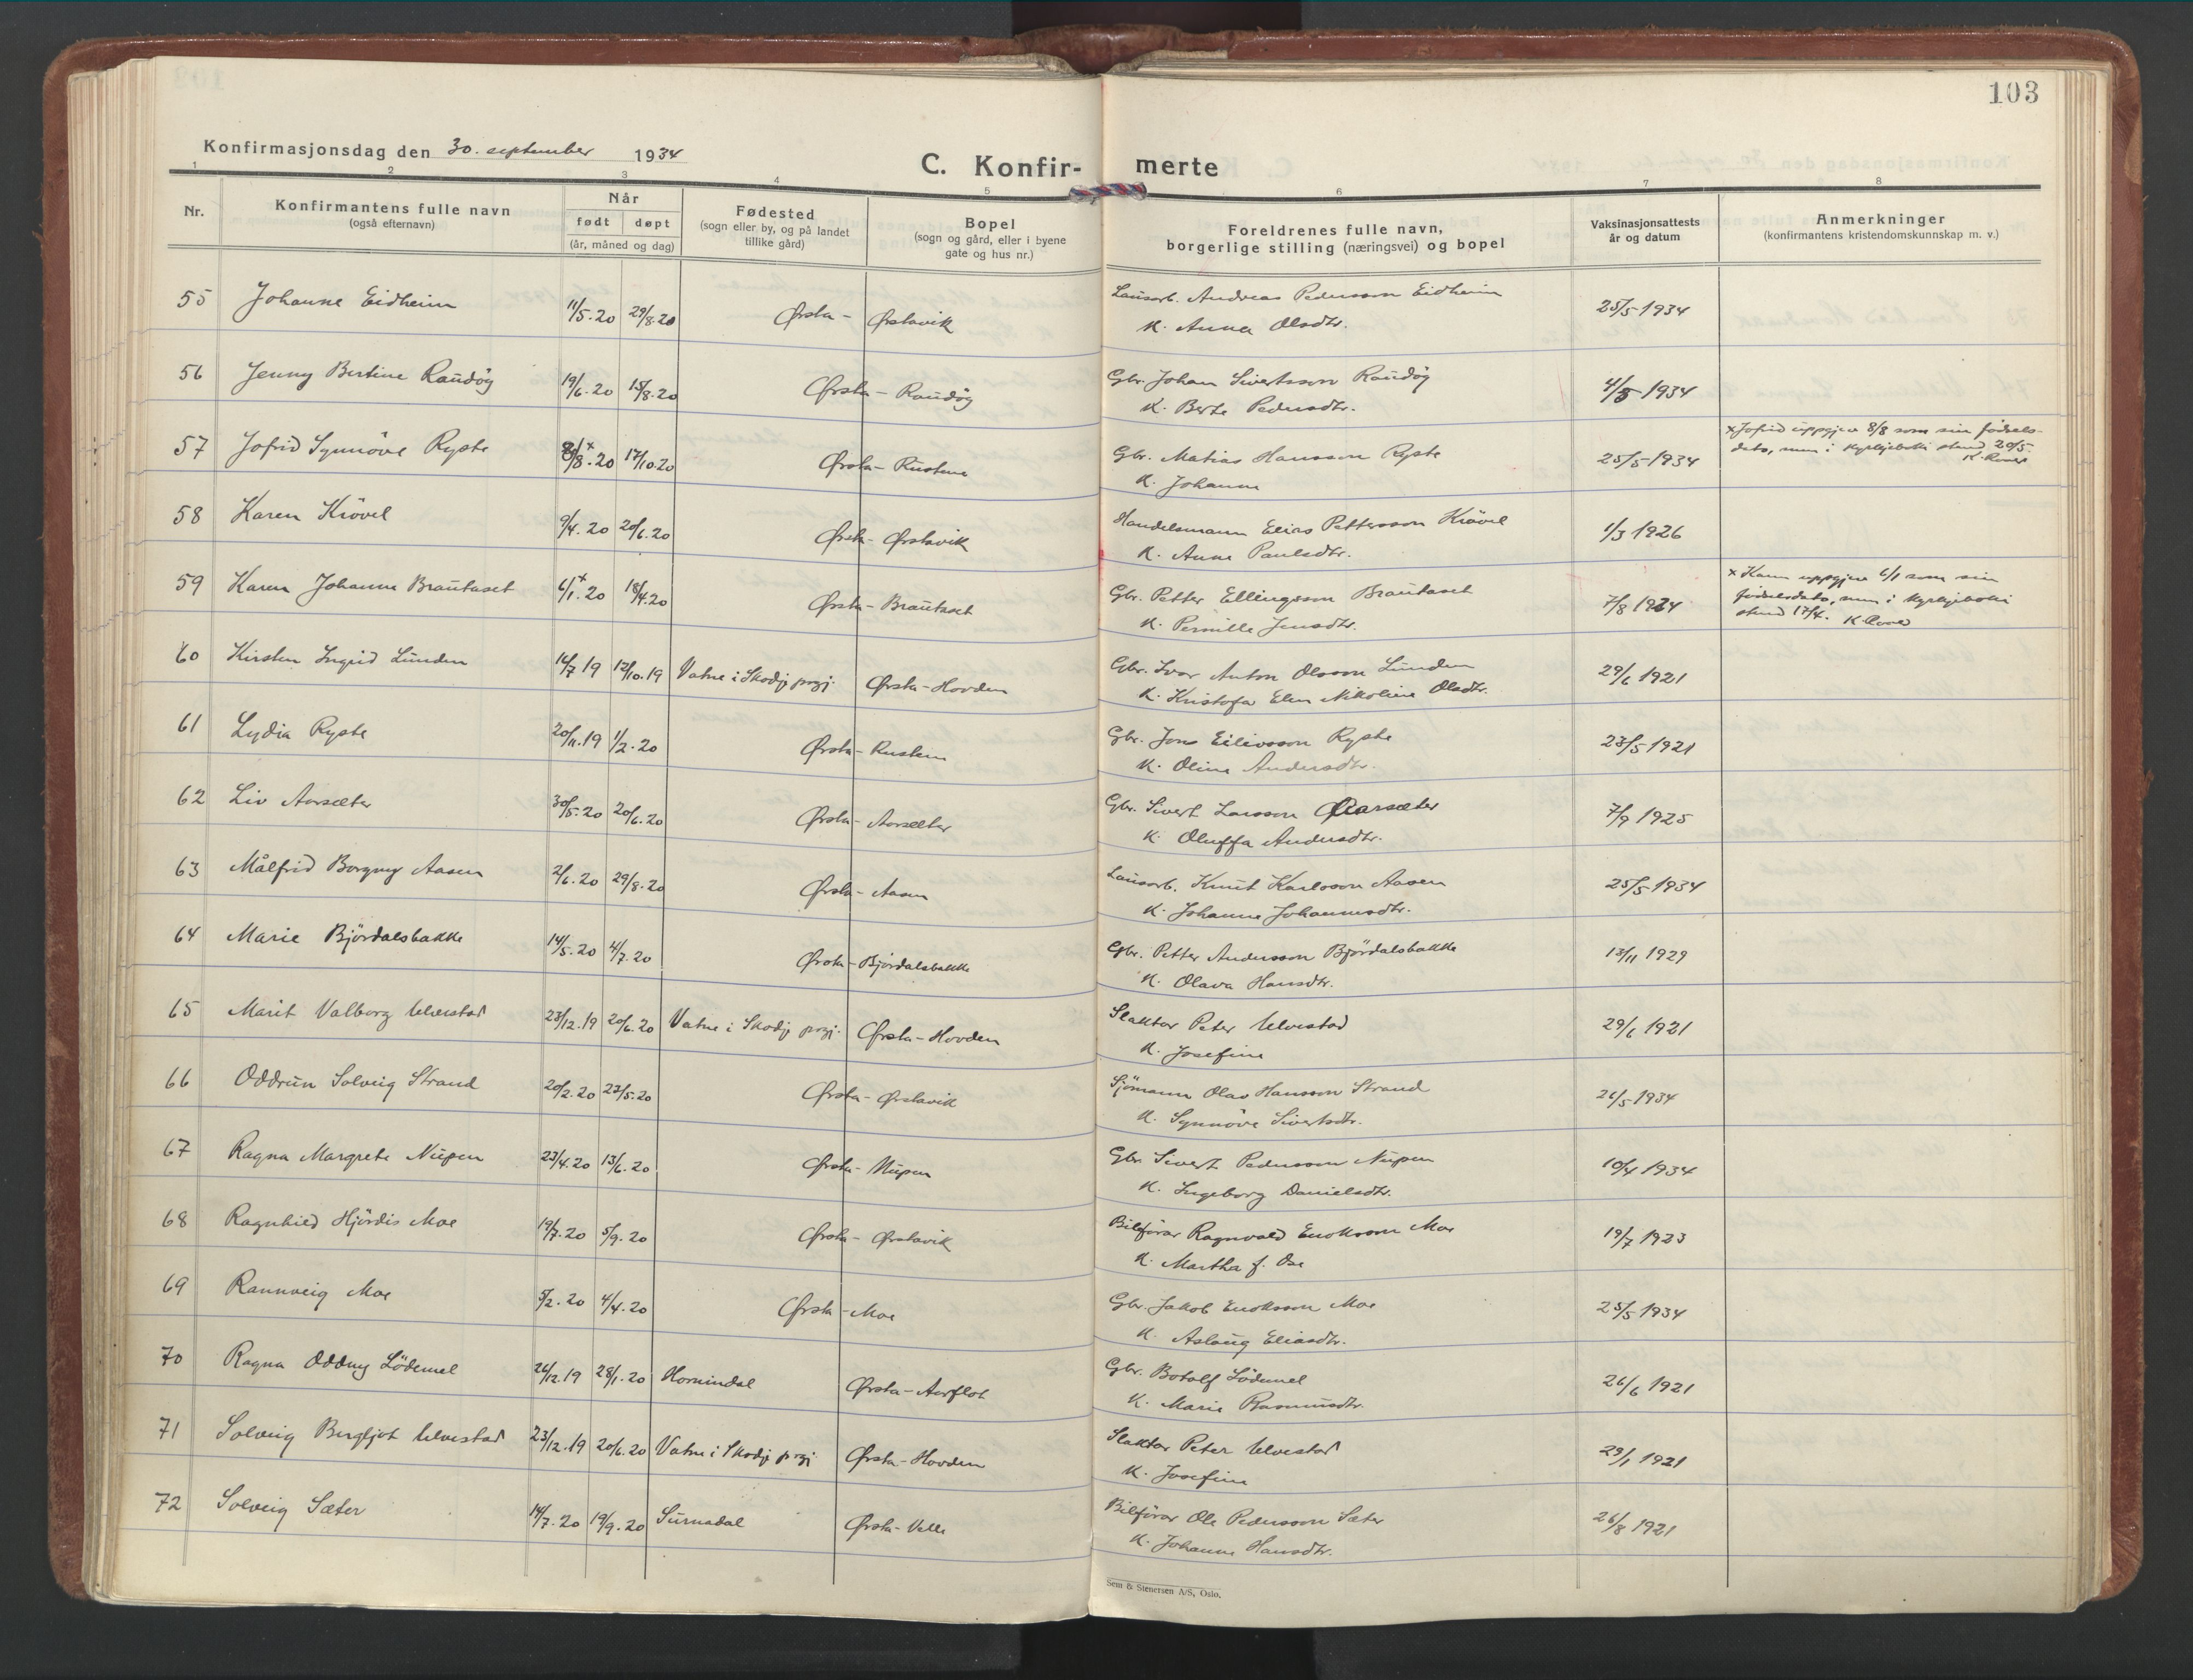 103
Konfirmasjonsdag den 30. september 1934
C. Konfir- merte
1 2 3 4 5 6 7 8
Nr.
Konfirmantens fulle navn
(også efternavn)
Når
født døpt
(år, måned og dag)
Fødested
(sogn eller by, og på landet
tillike gård)
Bopel
(sogn og gård, eller i byene
gate og hus nr.)
Foreldrenes fulle navn,
borgerlige stilling (næringsvei) og bopel
Vaksinasjonsattests
år og datum
Anmerkninger
(konfirmantens kristendomskunnskap m. v.)
55 Johanne Eidheim 11/5.20 29/8.20 Ørsta - Ørstavik Lausarb. Andreas Pedersson Eidheim 25/5-1934
K. Anna Olsdtr.
56 Jenny Bertine Raudøy 19/6.20 15/8.20 Ørsta - Raudøy Gbr. Johan Sivertsson Raudøy 4/5-1934
K. Berte Pedersdtr.
57 Jofrid Synnöve Ryste 8/8+.20 17/10.20 Ørsta - Rusten Gbr. Matias Hansson Ryste 25/5-1934
K. Johanne
x Jofrid uppgjev 8/8 som sin födsels-
dato, men i kyrkjeboki stend 20/5.
58 Karen Krövel 9/4.20 20/6.20 Ørsta - Ørstavik Handelsmann Elias Pettersson Krövel 1/3 1926
K. Anna Paulsdtr.
59 Karen Johanne Brautaset 6/1+.20 18/4.20 Ørsta - Brautaset Gbr. Petter Ellingsson Brautaset 7/8 1924
K. Pernille Jensdtr.
x Karen uppgjev 6/1 som sin
födselsdato, men i kyrkjeboki
stend 17/4.
60 Kirsten Ingrid Lunden 14/7 19 12/10.19 Vatne i Skodje prgj. Ørsta - Hovden Gbr. Ivar Anton Olsson Lunden 29/6 1921
K. Kristofa Elen Nikoline Olsdtr.
61 Lydia Ryste 20/11.19 1/2.20 Ørsta - Rusten Gbr. Jons Eilivsson Ryste 23/5-1921
K. Oline Andersdtr.
62 Liv Aarsæter 30/5.20 20/6.20 Ørsta - Aarsæter Gbr. Sivert Larsson Aarsæter 7/9 1925
K. Oluffa Andersdtr.
63 Målfrid Borgny Aasen 2/6.20 29/8.20 Ørsta - Aasen Lausarb. Knut Karlsson Aasen 25/5 1934
K. Johanne Johannesdtr.
64 Marie Björdalsbakke 14/5.20 4/7.20 Ørsta - Björdalsbakke Gbr. Petter Andersson Björdalsbakke 13/11 1929
K. Olava Hansdtr.
65 Marit Valborg Ulvestad 23/12.19 20/6.20 Vatne i Skodje prgj. Ørsta - Hovden Slaktar Peter Ulvestad 29/6 1921
K. Josefine
66 Oddrun Solveig Strand 20/2.20 23/5.20 Ørsta - Ørstavik Sjömann Olav Hansson Strand 26/5 1934
K. Synnöve Sivertsdtr.
67 Ragna Margrete Nupen 23/4.20 13/6.20 Ørsta - Nupen Gbr. Sivert Pedersson Nupen 10/4 1934
K. Ingeborg Danielsdtr.
68 Ragnhild Hjördis Moe 19/7.20 5/9.20 Ørsta - Ørstavik Bilförar Ragnvald Enoksson Moe 19/7 1923
K. Martha f. Ose
69 Rannveig Moe 5/2.20 4/4.20 Ørsta - Moe Gbr. Jakob Enoksson Moe 25/5 1934
K. Aslaug Eliasdtr.
70 Ragna Oddny Lödemel 26/12.19 28/1.20 Hornindal Ørsta - Aarflot Gbr. Botolf Lödemel 26/6 1921
K. Marie Rasmusdtr.
71 Solveig Bergljot Ulvestad 23/12.19 20/6.20 Vatne i Skodje prgj. Ørsta - Hovden Slaktar Peter Ulvestad 29/1 1921
K. Josefine
72 Solveig Sæter 14/7.20 19/9.20 Surnadal Ørsta - Velle Bilförar Ole Pedersson Sæter 26/8 1921
K. Johanne Hansdtr.
Sem & Stenersen A/S, Oslo.